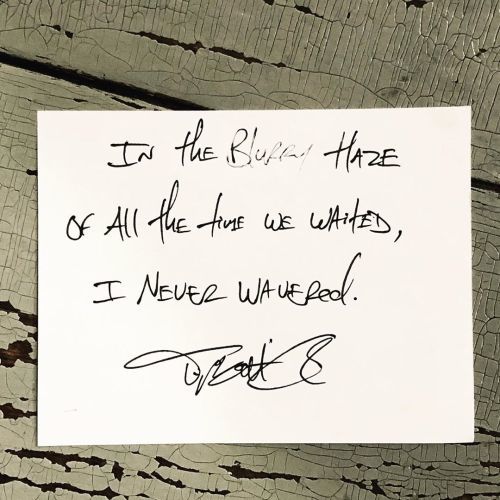 In the Blurry Haze
of All the time we waited,
I Never wavered.